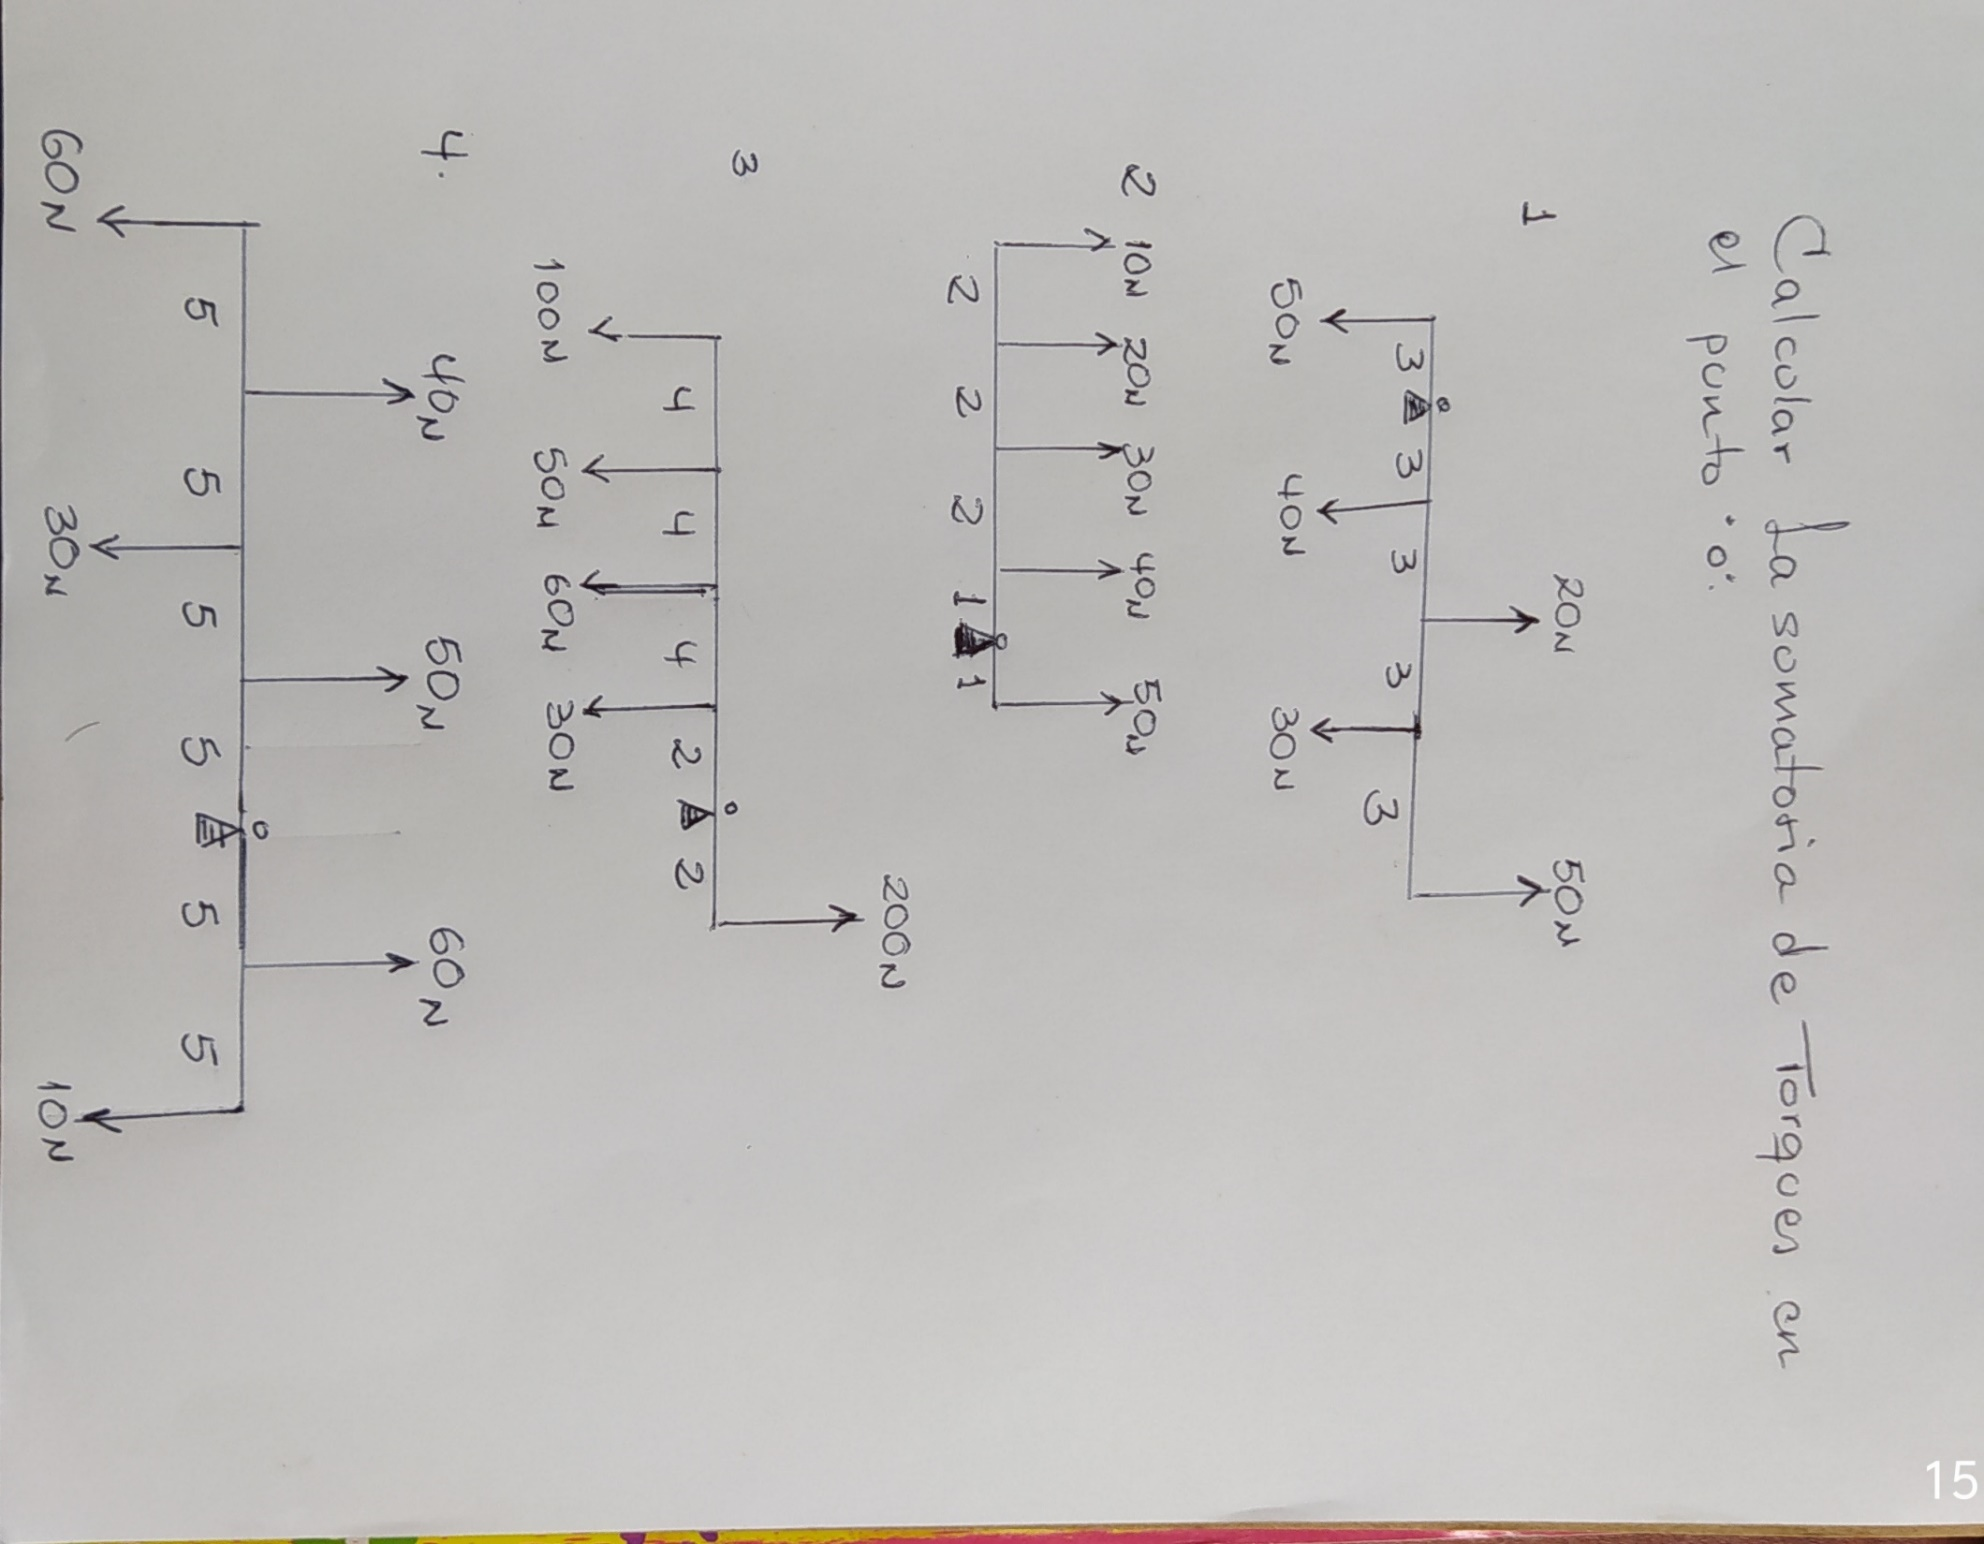 Calcular la somatoria de Torques en
el punto "o".
1
20N
50N
o
3 3 3 3 3
50N
40N
30N
2
10N 20N 30N 40N 50N
o
2 2 2 1 1
3
200N
o
4 4 4 2 2
100N 50N 60N 30N
4.
40N
50N
60N
o
5 5 5 5 5 5
60N
30N
10N
15